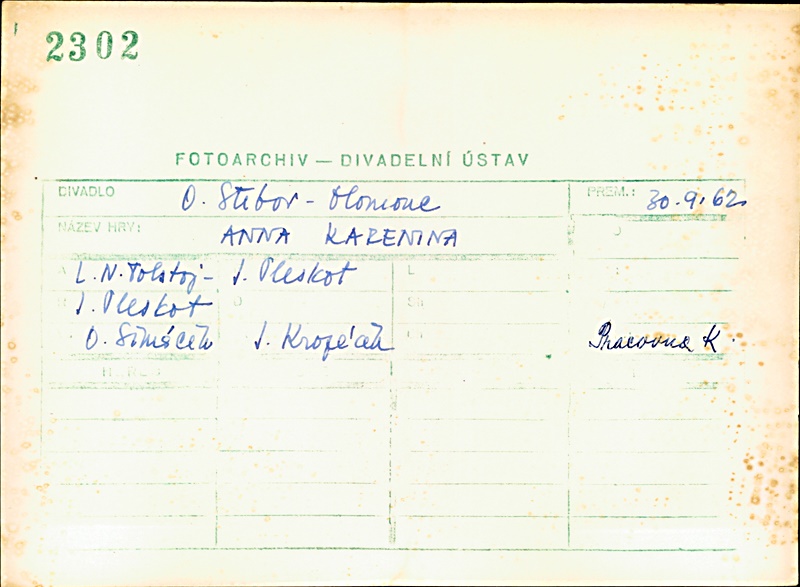 2302
FOTOARCHIV — DIVADELNÍ ÚSTAV
DIVADLO O. Stibor - Olomouc PREM.: 30.9.62
NÁZEV HRY: ANNA KARENINA
L. N. Tolstoj - J. Pleskot
J. Pleskot
O. Šimáček J. Kropáček Pracovna K.